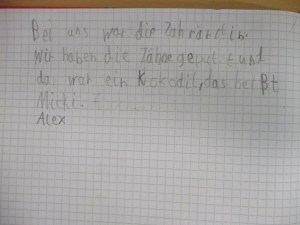 Bei uns war die Zahnärztin.
Wir haben die Zähne geputzt und
da war ein Krokodil, das heißt
Micki.
Alex